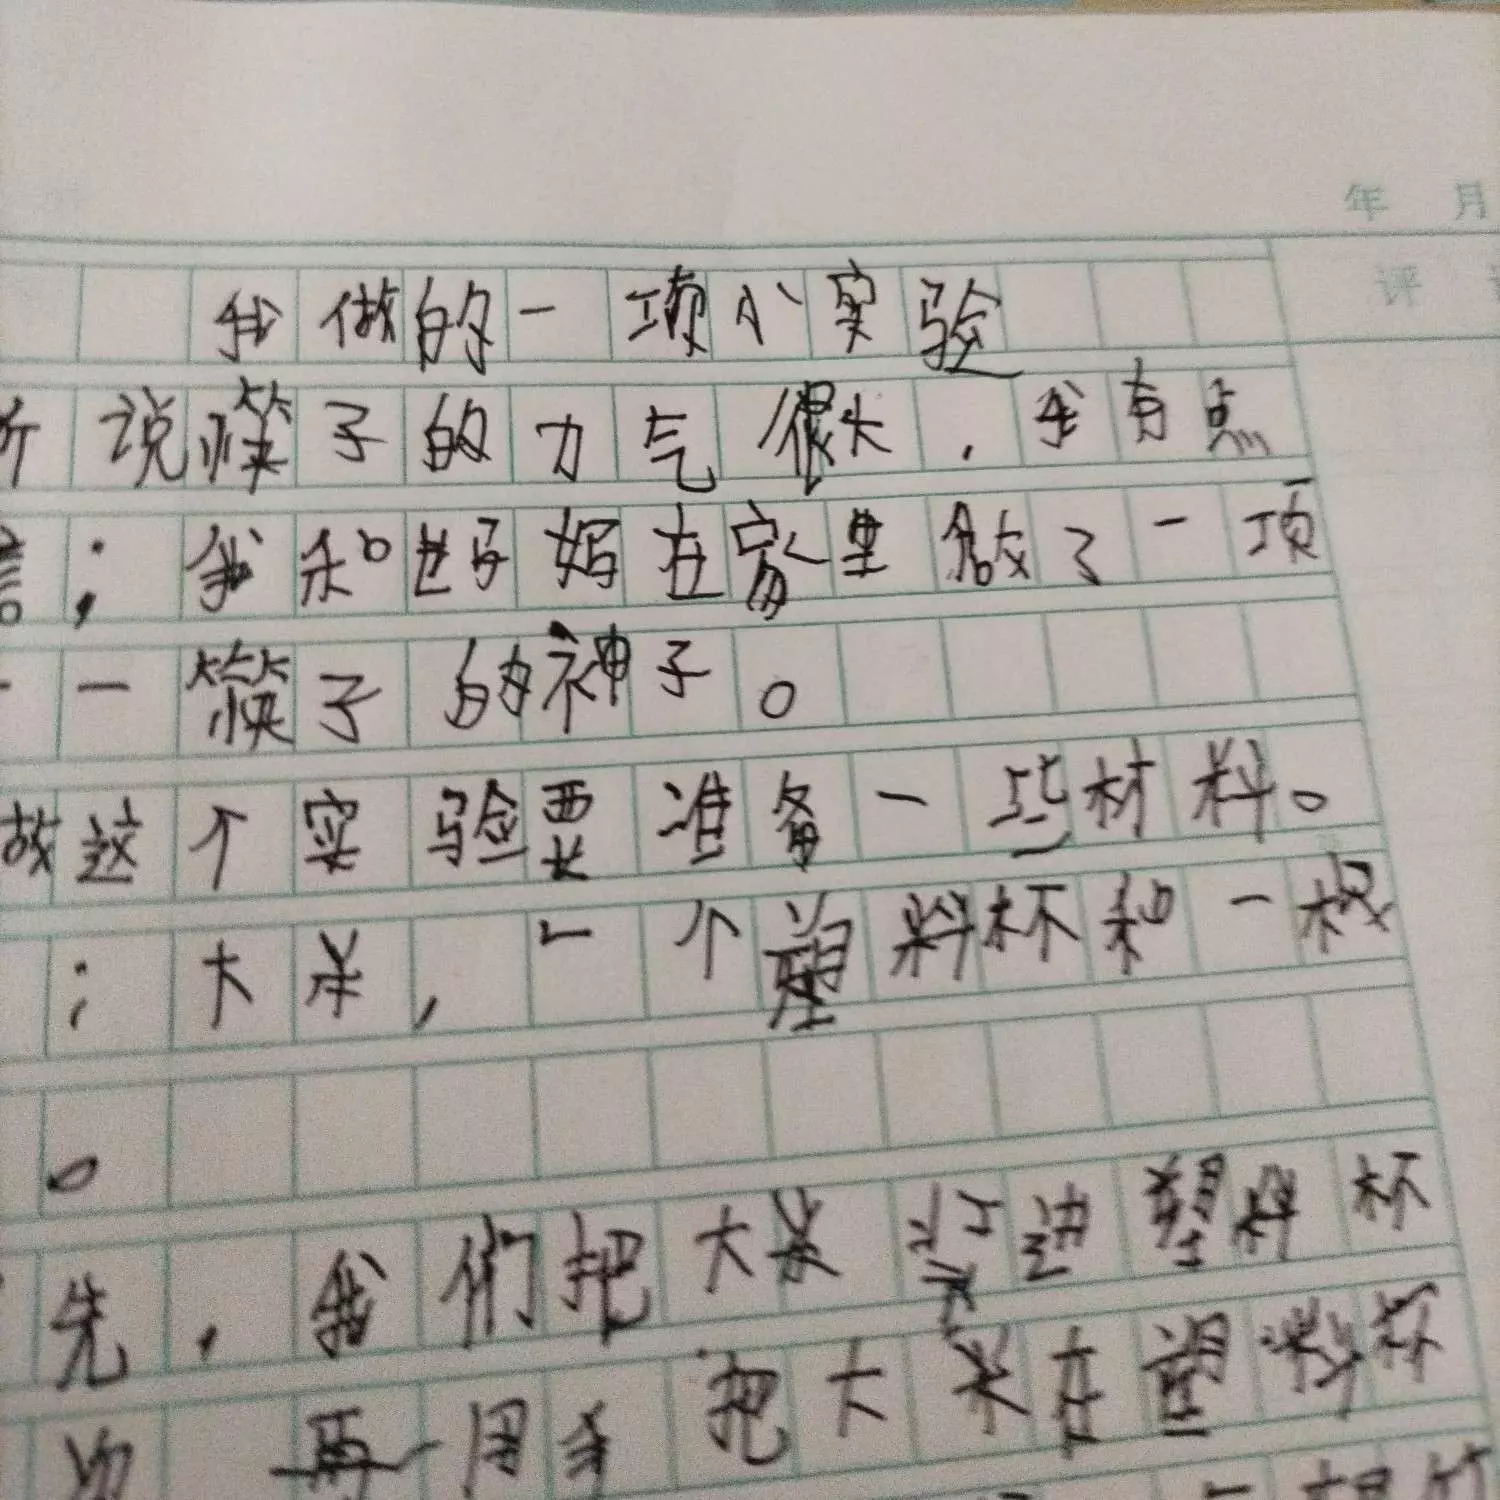 年 月
评
我做的一项小实验
听说筷子的力气很大,我有点
信;我和妈妈在家里做了一项
一筷子的神子。
做这个实验要准备一些材料。
:大米,一个塑料杯和一根
。
先,我们把大米 进塑料杯
再用手把大米在塑料杯